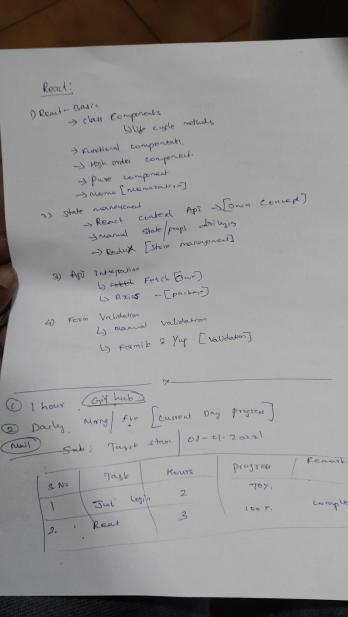 React:
1) React - Basic
→ Class Components
↳ Life cycle methods
→ Functional components
→ High order component
→ Pure component
→ Memo [memoization]
2) State management
→ React Context Api → [Own Concept]
→ manual state/props drilling
→ Redux [Store management]
3) Api Integration
↳ Fetch [Own]
↳ Axios - [package]
4) Form Validation
↳ manual validation
↳ Formik & Yup [validation]
① 1 hour. Git hub
② Daily Mrng/Eve [Current Day progress]
Mail Sub: Task
S.No Task Hours progress Remark
1 Login 2 70%
2. React 3 100%. Comple